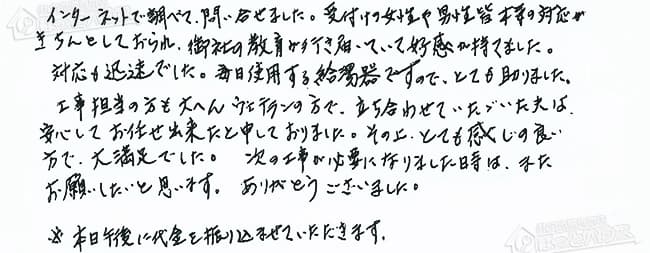 インターネットで調べて、問い合せました。受付けの女性や男性皆様の対応が
きちんとしておられ、御社の教育が行き届いていて好感が持てました。
対応も迅速でした。毎日使用する給湯器ですので、とても助りました。
工事担当の方も大へんヴェテランの方で、立ち合わせていただいた夫は、
安心してお任せ出来たと申しておりました。その上、とても感じの良い
方で、大満足でした。 次の工事が必要になりました日時は、また
お願いしたいと思います。 ありがとうございました。
※ 本日午後に代金を振り込ませていただきます。